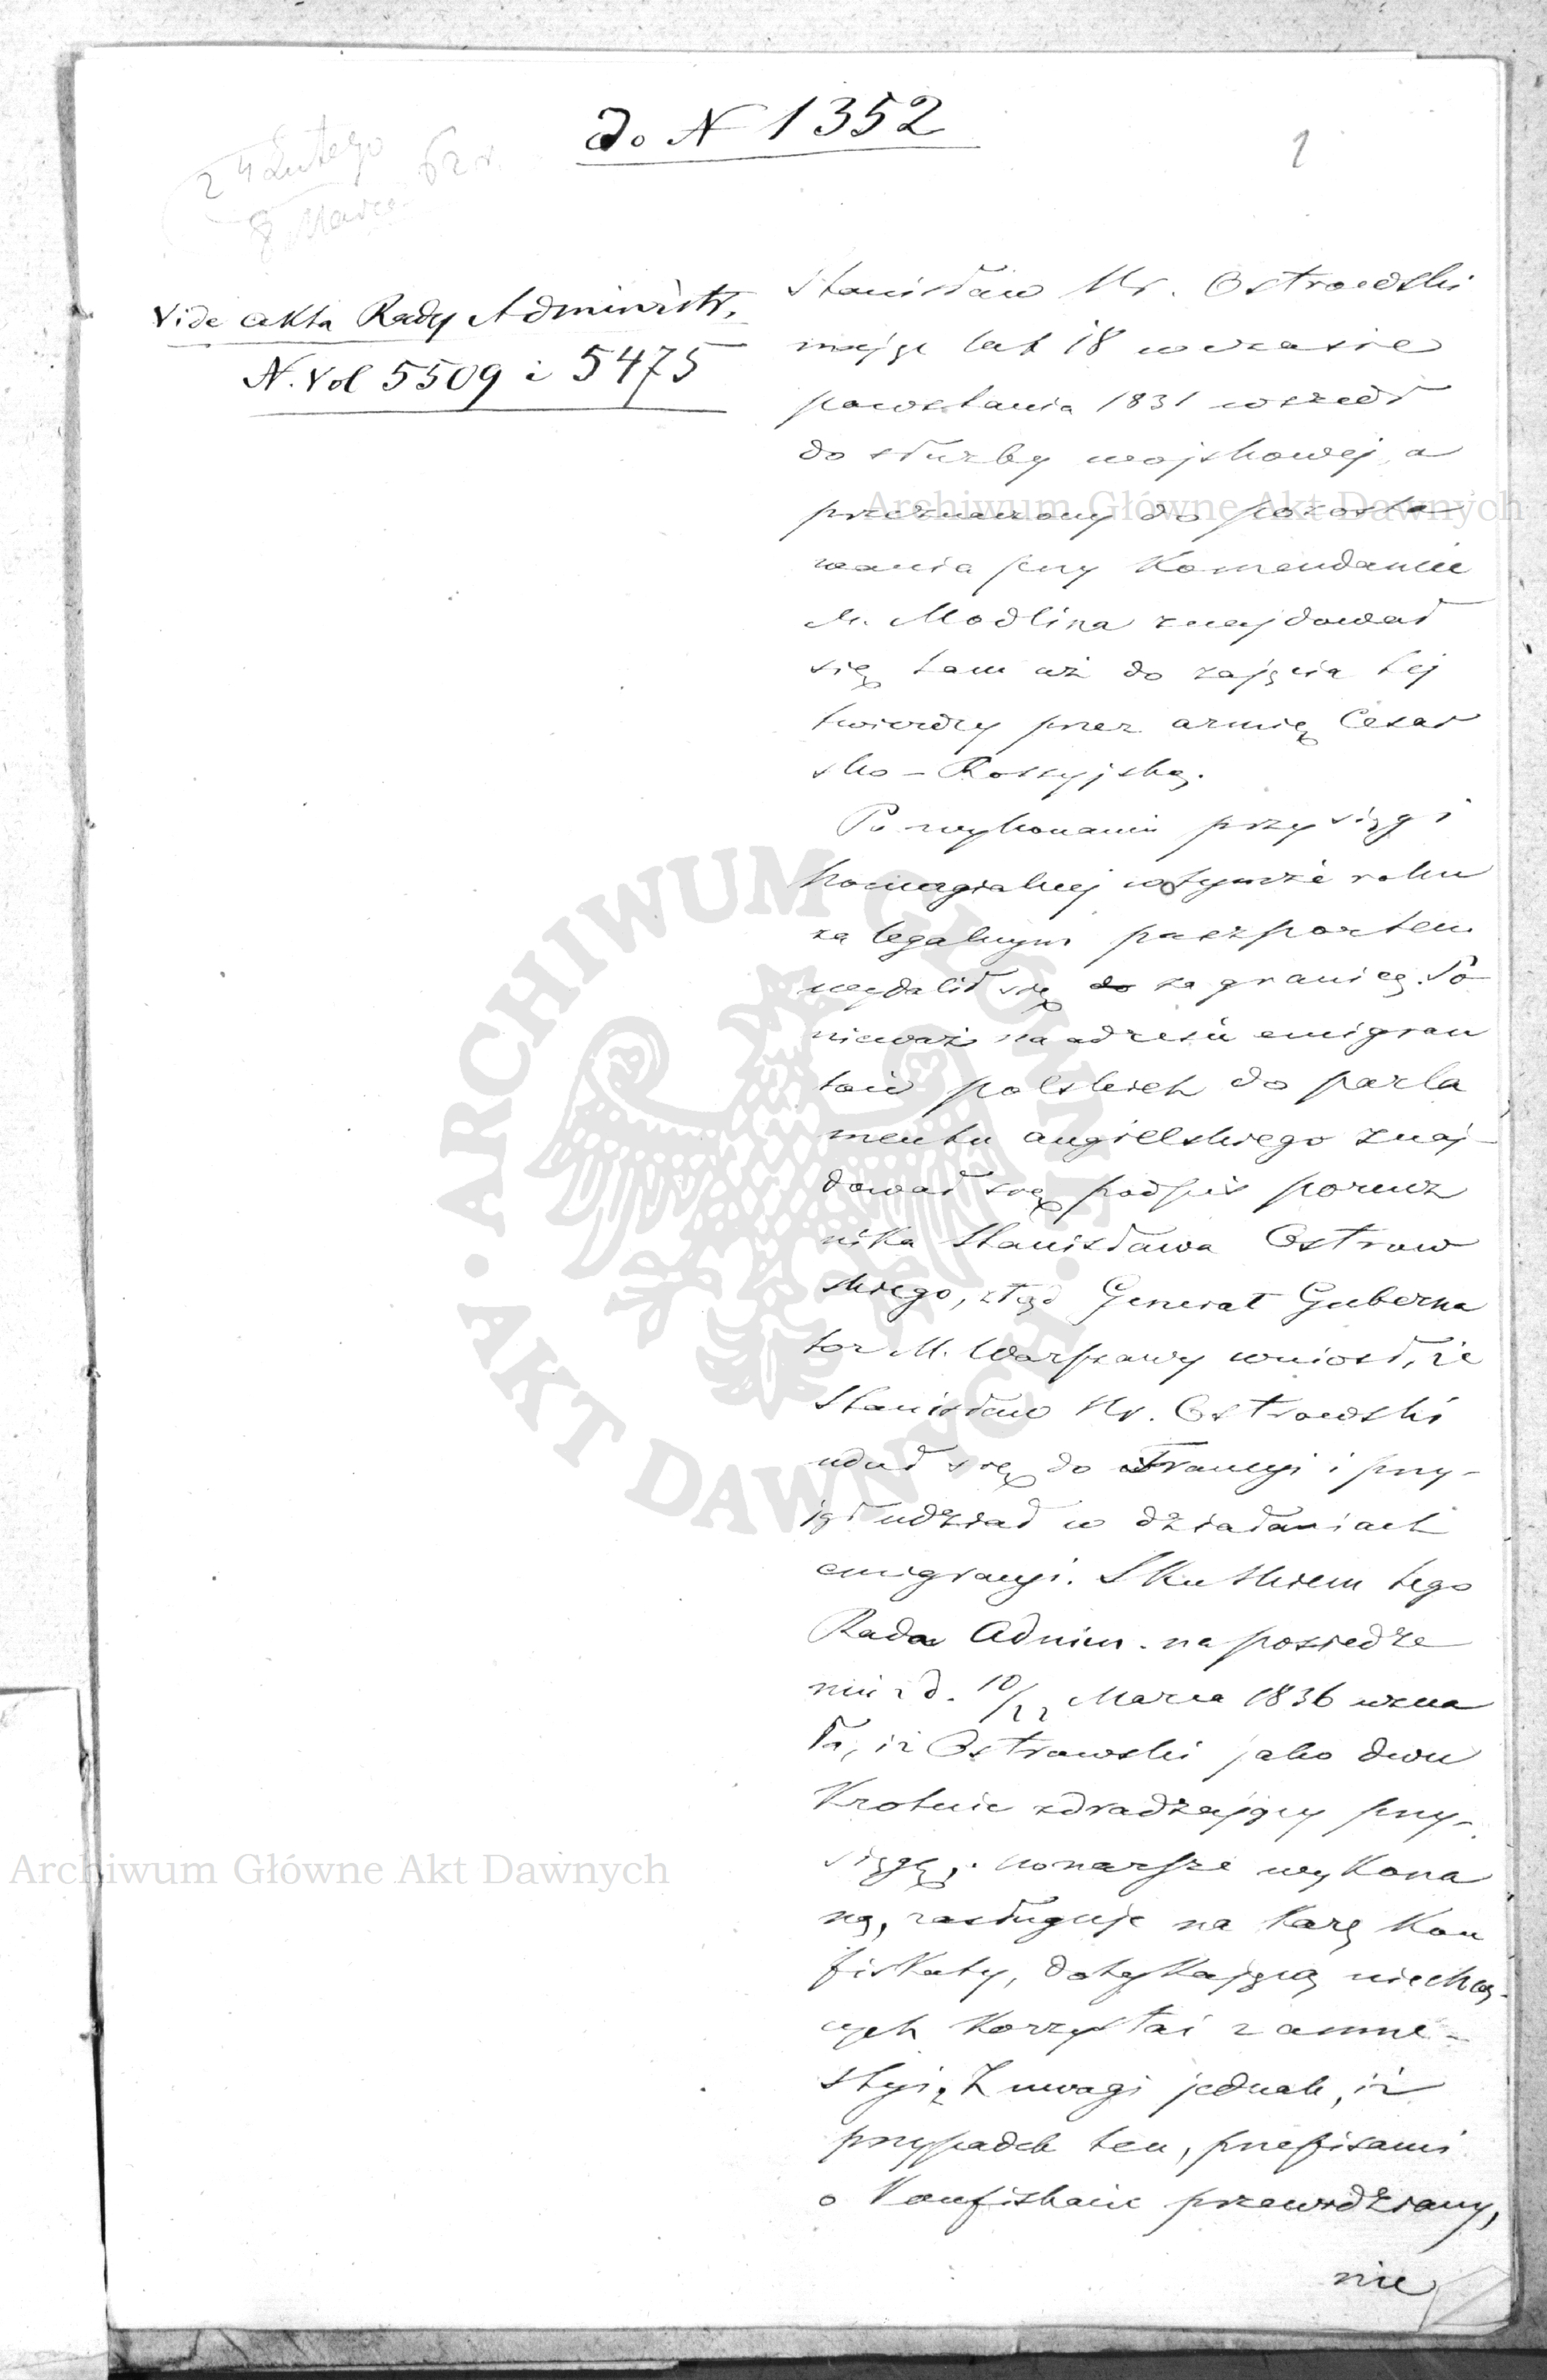 do N 1352
1
24 Lutego
8 Marca 62 r.
Vide akta Rady Administr.
N. Vol 5509 i 5475
Stanisław Hr. Ostrowski
mając lat 18 w czasie
powstania 1831 wszedł
do służby wojskowej, a
przeznaczony do pozosta
wania przy Komendancie
M. Modlina znajdował
się tam aż do zajęcia tej
twierdzy przez armię Cesar
sko-Rossyjską.
Po wykonaniu przysięgi
homagialnej w tymże roku
za legalnym paszportem
wydalił się do za granicę. Po
nieważ na adresie emigran
tów polskich do parla
mentu angielskiego znaj-
dował się podpis porucz
nika Stanisława Ostrow
skiego, ztąd Generał Guberna
tor M. Warszawy wniosł, że
Stanisław Hr. Ostrowski
udał się do Francyi i przy-
jął udział w działaniach
emigracyi. Skutkiem tego
Rada Admin. na posiedze
niu z d. 10/22 Marca 1836 uzna
ła, iż Ostrowski jako dwu
krotnie zdradzający przy-
sięgę, monarsze wykona
ną, zasługuje na karę kon
fiskaty, dotykającą niechcą-
cych korzystać z amne-
styi. Z uwagi jednak, iż
przypadek ten, przepisami
o konfiskacie przewidziany,
nie
Archiwum Główne Akt Dawnych
Archiwum Główne Akt Dawnych
ARCHIWUM GŁÓWNE AKT DAWNYCH